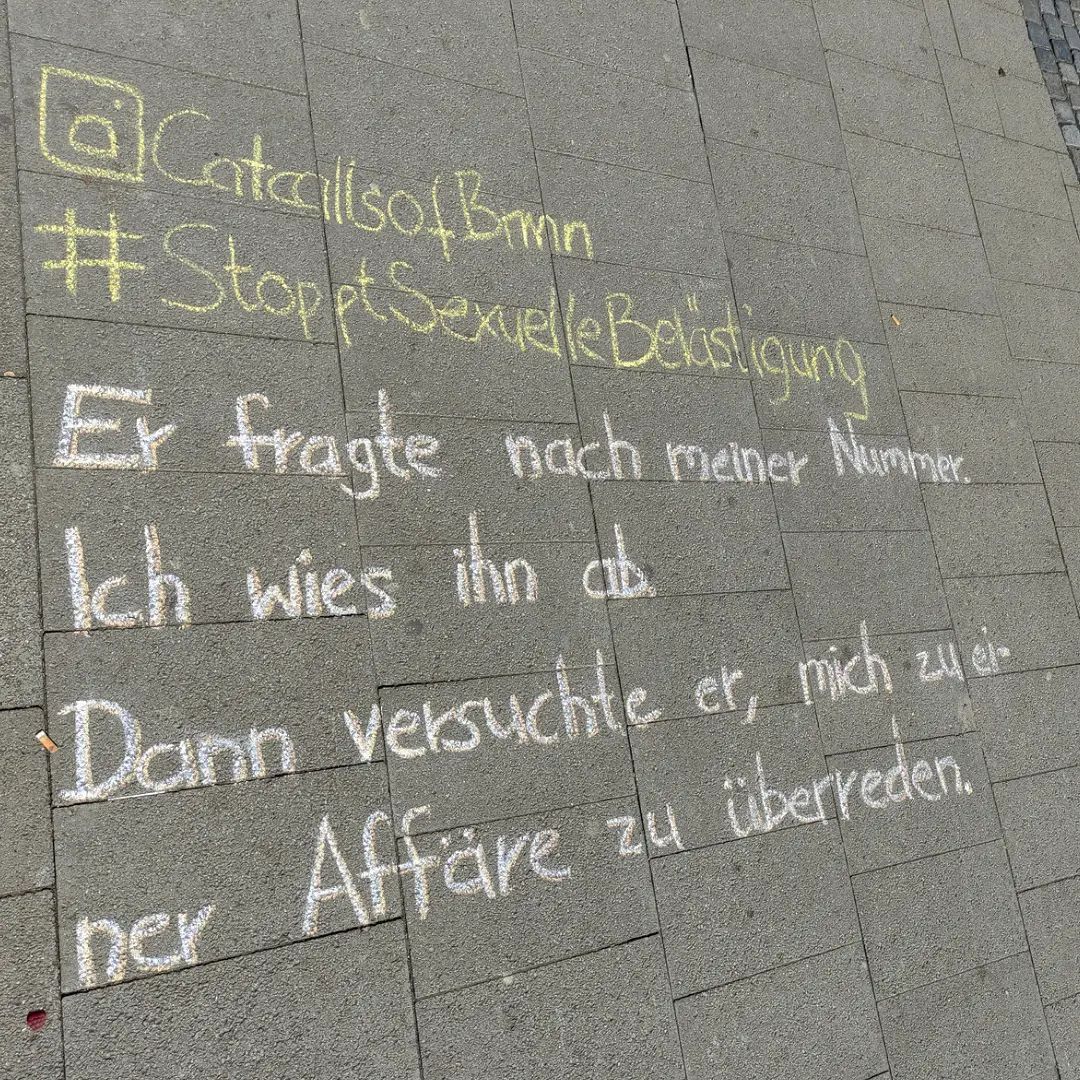 CatcallsofBrmn
#StopptSexuelleBelästigung
Er fragte nach meiner Nummer.
Ich wies ihn ab.
Dann versuchte er, mich zu ei-
ner Affäre zu überreden.